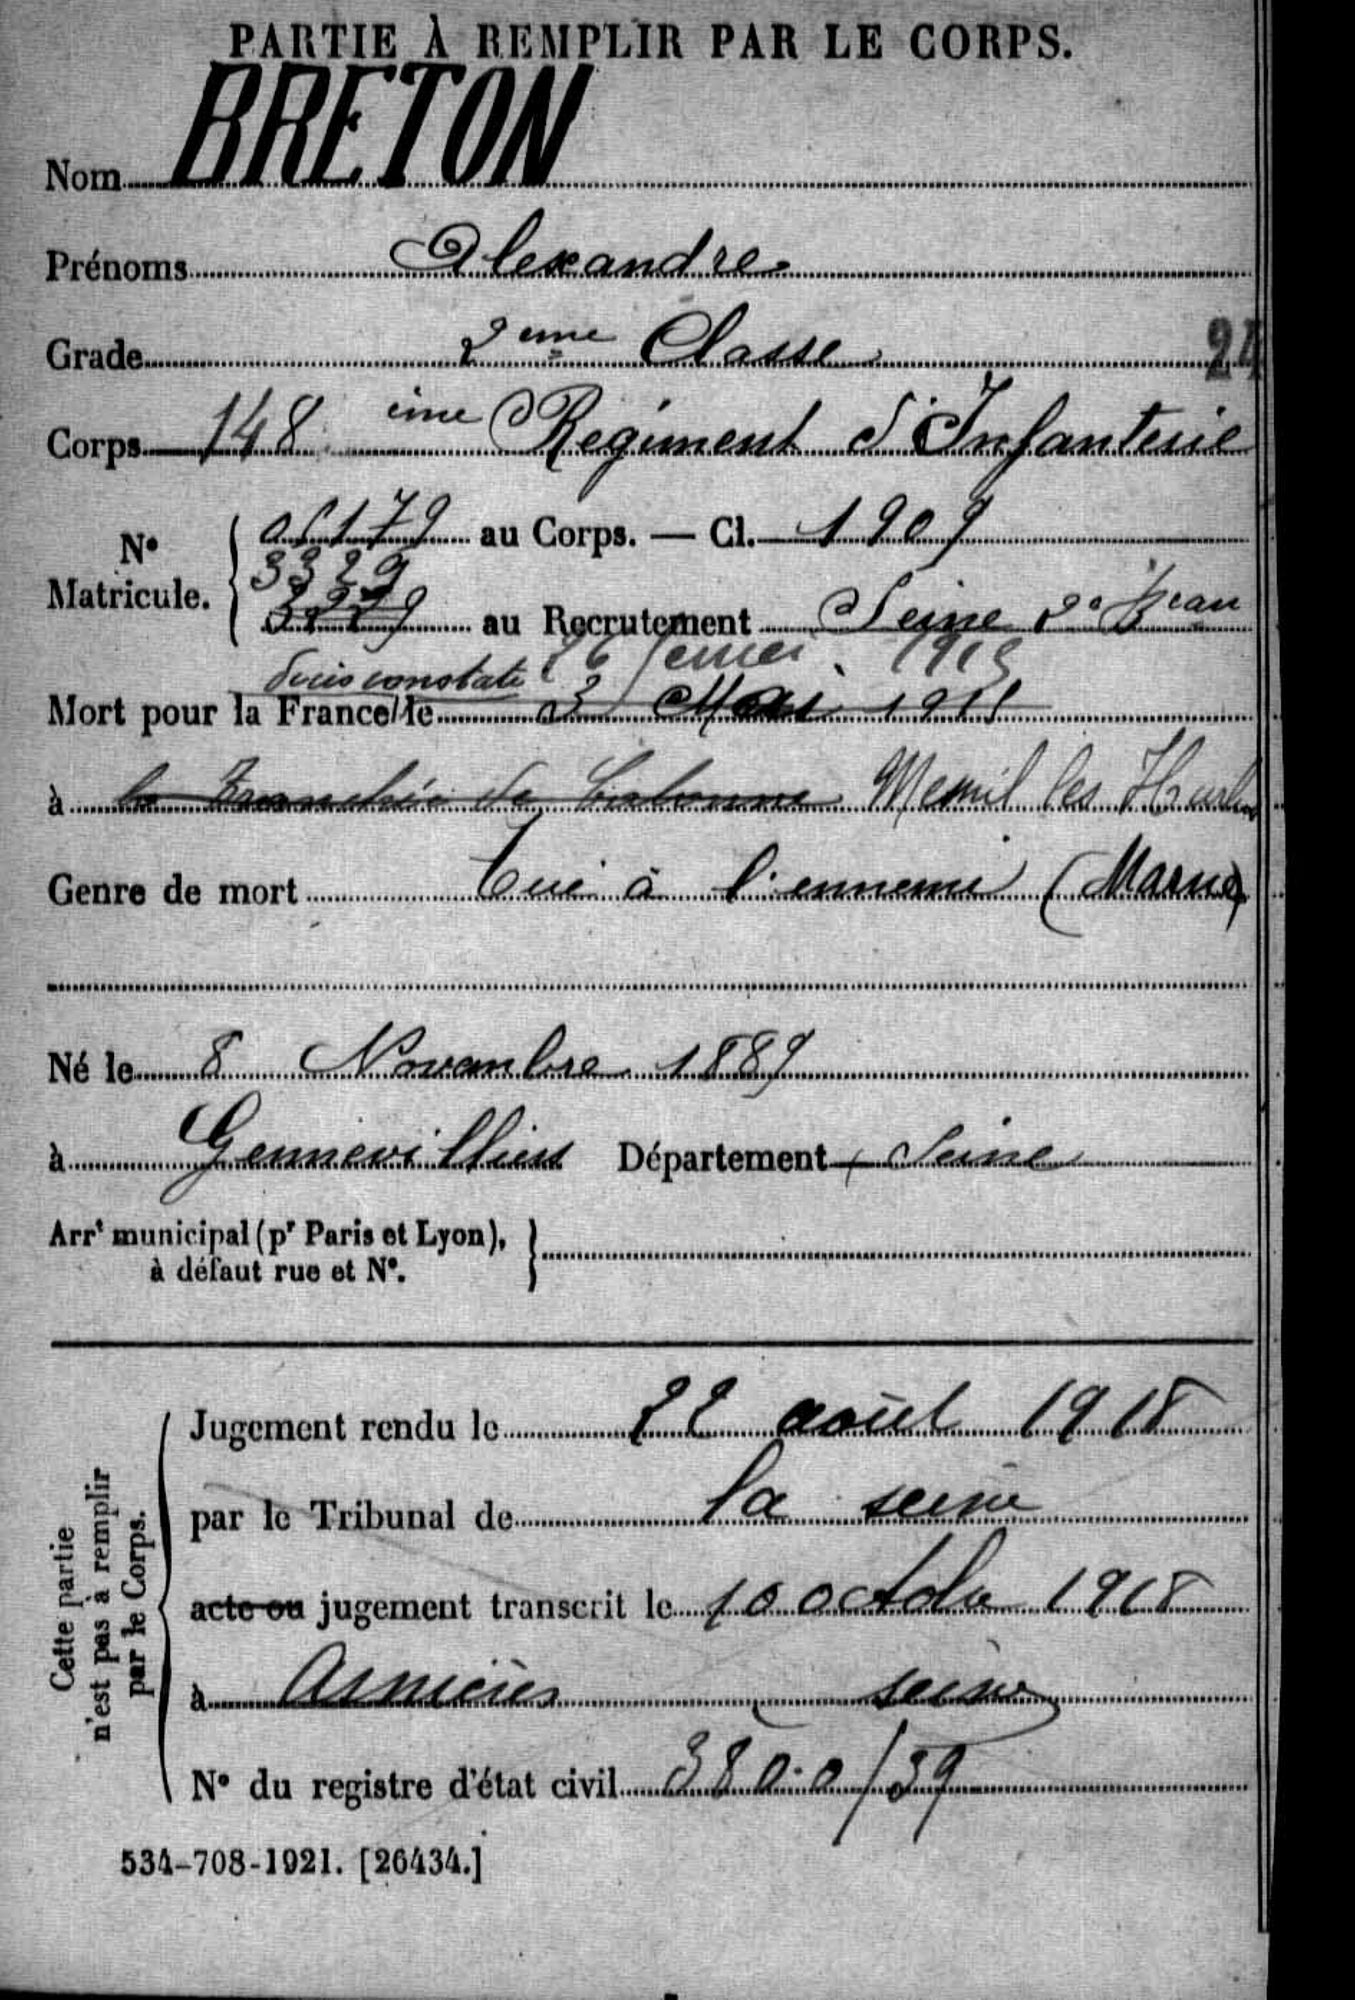 PARTIE À REMPLIR PAR LE CORPS.
Nom BRETON
Prénoms Alexandre
Grade 2eme Classe
Corps 148 ème Régiment d'Infanterie
N° Matricule. { 06179 au Corps. — Cl. 1909
3329
3229 au Recrutement Seine 2e Beau
décès constaté 26 février 1915
Mort pour la France le 3 Mai 1915
à la Tranchée de Calonne Mesnil les Hurlus
Genre de mort Tué à l'ennemi (Marne)
Né le 8 Novembre 1889
à Gennevilliers Département Seine
Arrt municipal (pr Paris et Lyon),
à défaut rue et N°.
Cette partie
n'est pas à remplir
par le Corps.
Jugement rendu le 22 août 1918
par le Tribunal de la seine
acte ou jugement transcrit le 10 octobre 1918
à Asnières seine
N° du registre d'état civil 380.0/39
534-708-1921. [26434.]